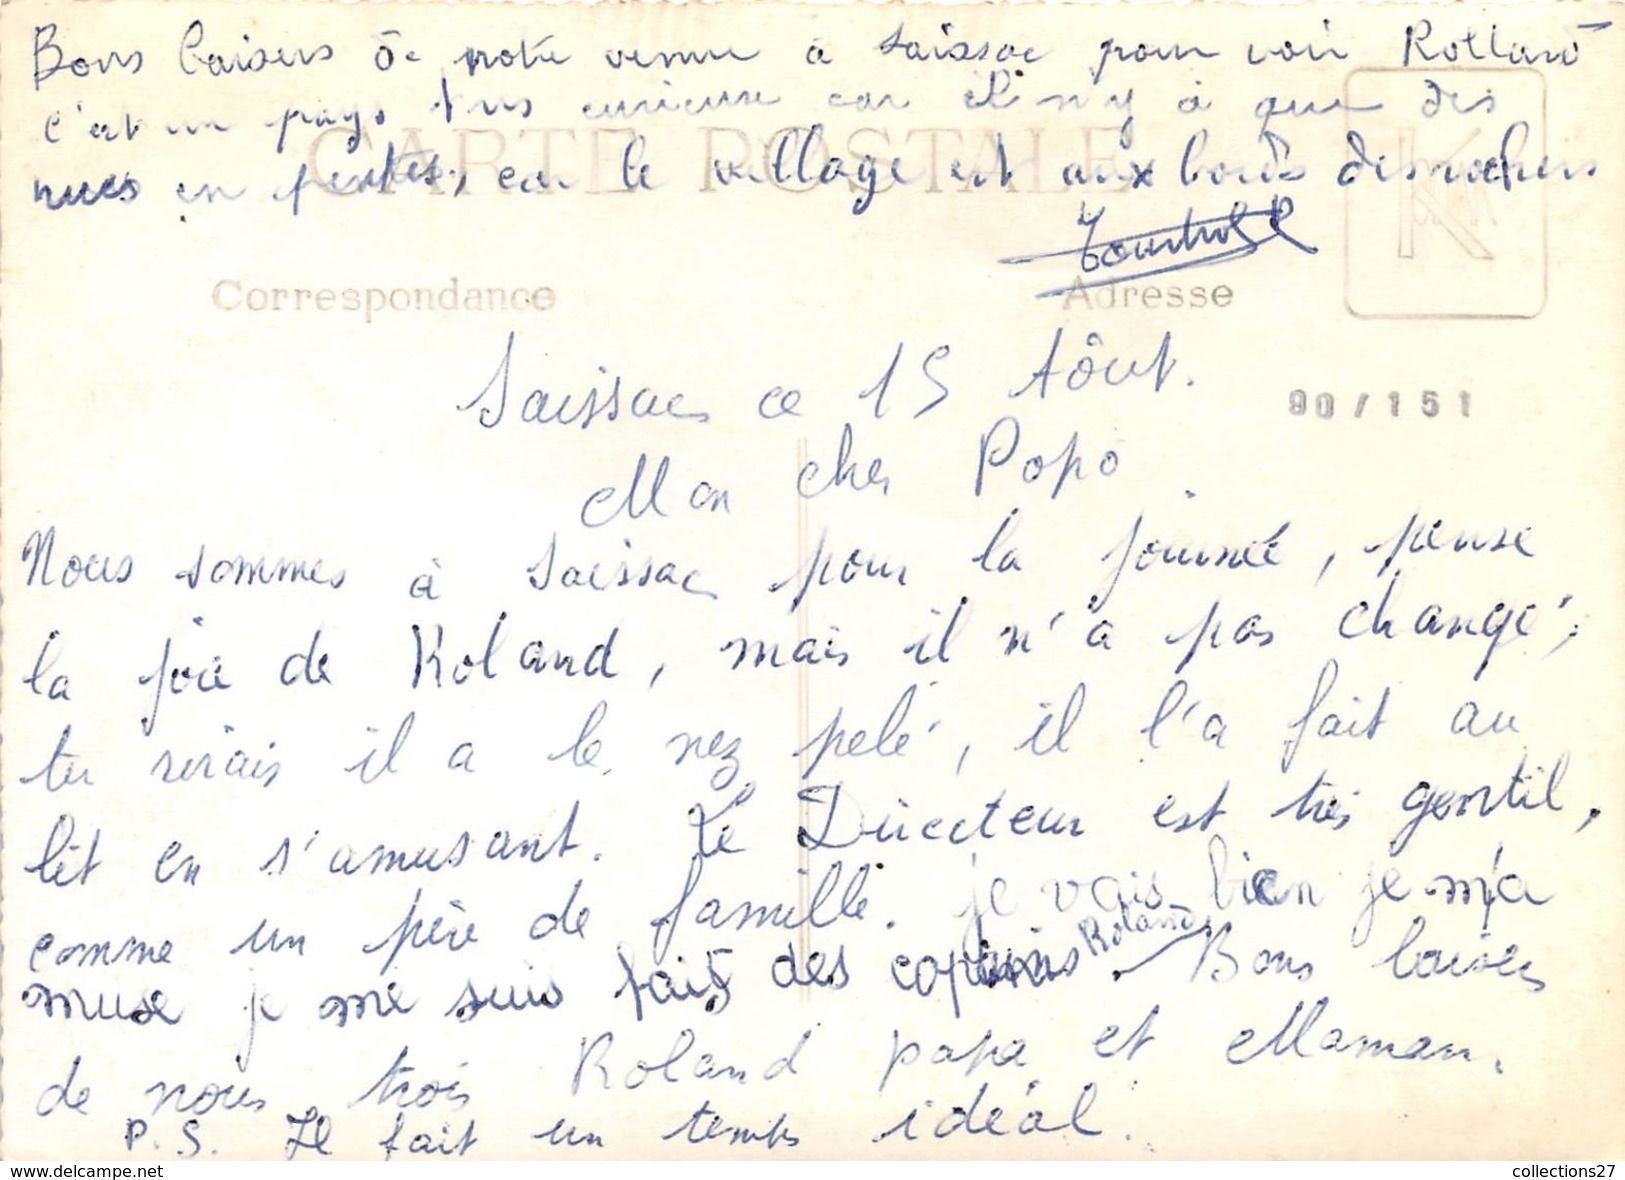 Bons baisers de notre venue à Saissac pour voir Rolland
c'est un pays très curieux car il n'y à que des
CARTE POSTALE
rues en pentes, car le village est aux bords des rochers
K
Correspondance
Adresse
Saissac ce 15 Aôut.
90/151
Mon cher Popo.
Nous sommes à Saissac pour la journée, pense
la joie de Roland, mais il n'a pas changé,
tu rirais il a le nez pelé, il l'a fait au
lit en s'amusant. Le Directeur est très gentil,
comme un père de famille. je vais bien je m'a
muse je me suis fais des copains Roland Bons baisers
de nous trois Roland papa et Maman.
P.S. Il fait un temps idéal.
collections27